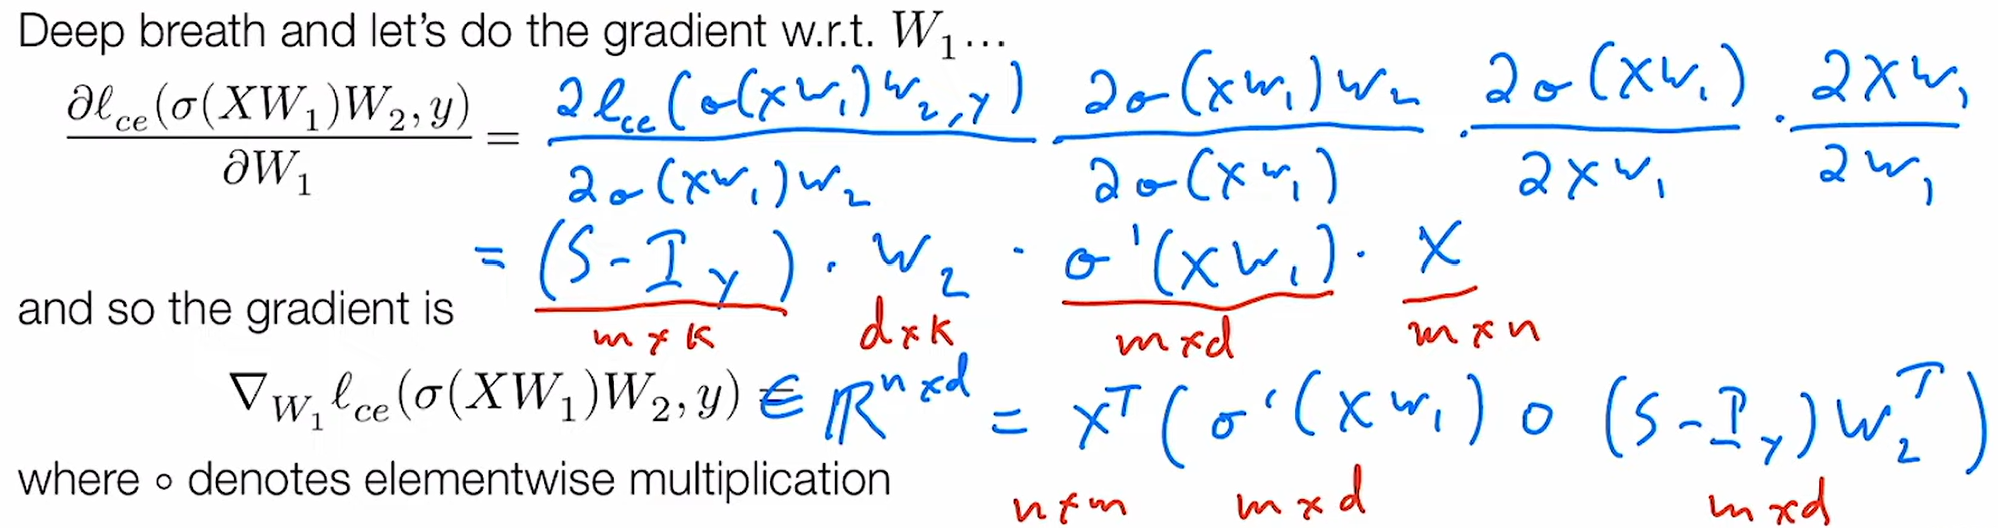 Deep breath and let's do the gradient w.r.t. W₁...
∂ℓ_ce(σ(XW₁)W₂, y) / ∂W₁ = ∂ℓ_ce(σ(XW₁)W₂, y) / ∂σ(XW₁)W₂ · ∂σ(XW₁)W₂ / ∂σ(XW₁) · ∂σ(XW₁) / ∂XW₁ · ∂XW₁ / ∂W₁
= (S - I_y) · W₂ · σ'(XW₁) · X
and so the gradient is
m × k d × k m × d m × n
∇_W₁ ℓ_ce(σ(XW₁)W₂, y) ∈ ℝ^{n×d} = Xᵀ(σ'(XW₁) ∘ (S - I_y)W₂ᵀ)
where ∘ denotes elementwise multiplication
n × m m × d m × d